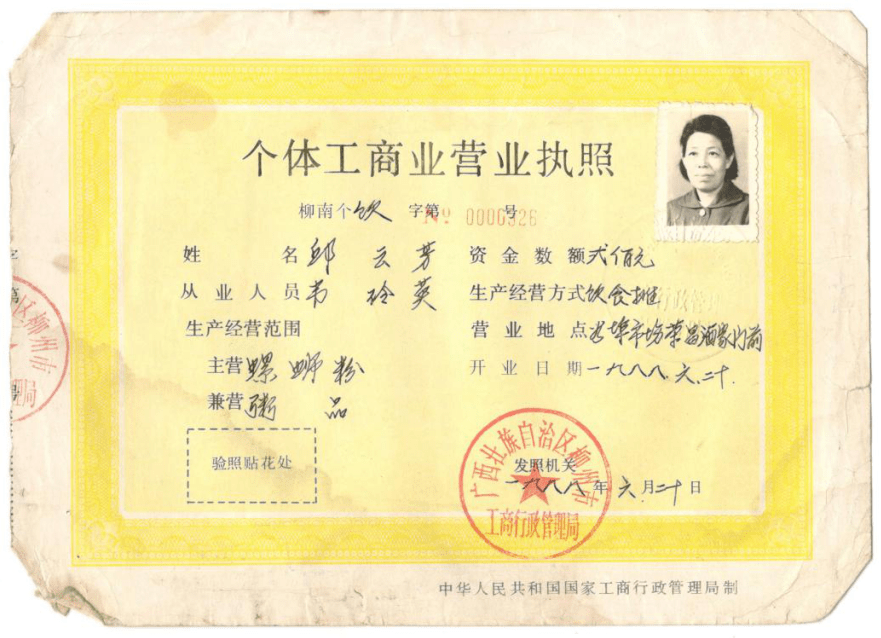 个体工商业营业执照
柳南个饮 字第№ 0000326号
姓 名 邱云芳
资金数额 弍佰元
从业人员 韦玲英
生产经营方式 饮食摊
生产经营范围
营业地点 谷埠市场荣昌酒家门前
主营 螺蛳粉
开业日期 一九八八.六.二十.
兼营 粥品
验照贴花处
发照机关
广西壮族自治区柳州市
工商行政管理局
一九八八年六月二十日
中华人民共和国国家工商行政管理局制